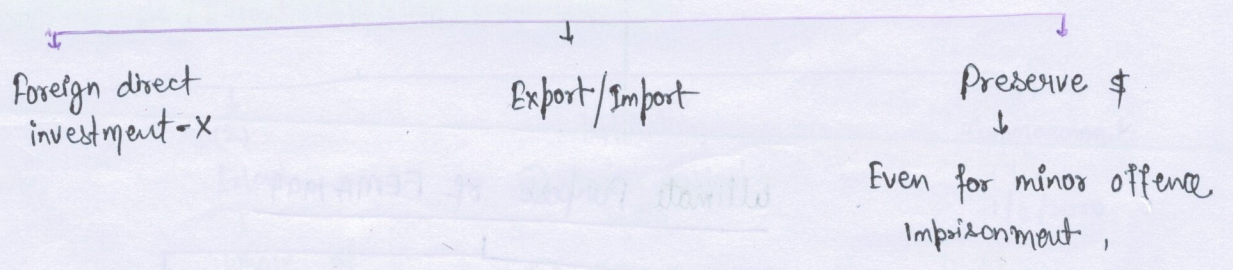 Foreign direct
investment - X
Export/Import
Preserve $
Even for minor offence
Imprisonment,